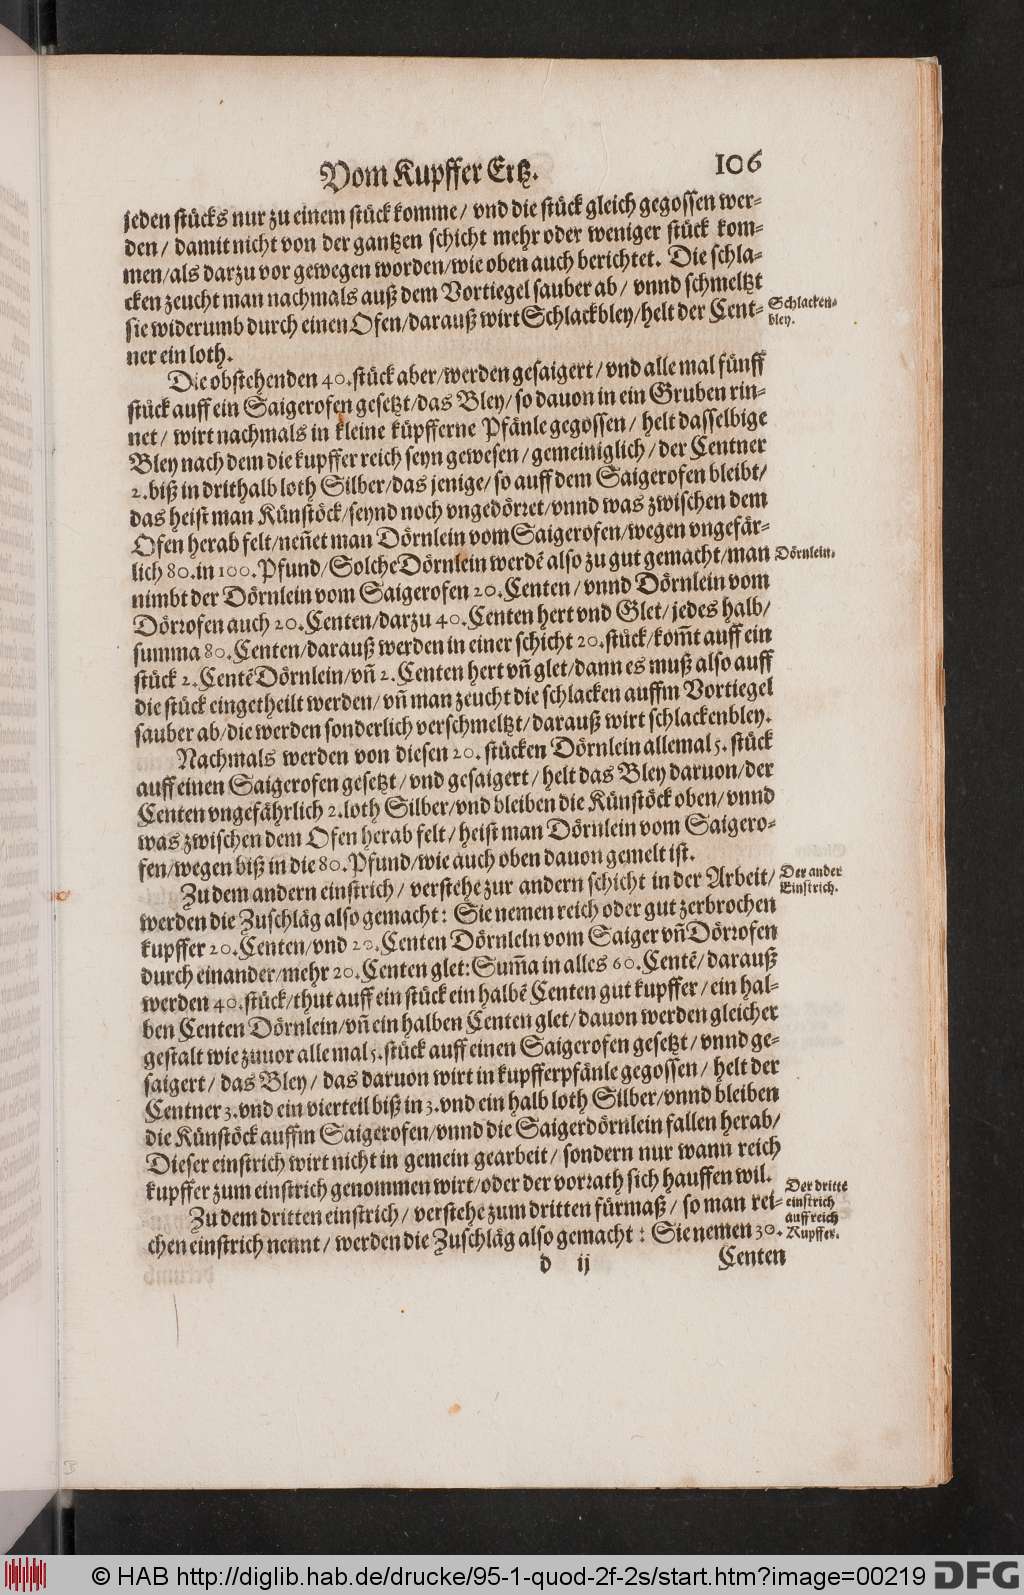 Vom Kupffer Ertz. 106
jeden stücks nur zu einem stück komme / vnd die stück gleich gegossen wer-
den / damit nicht von der gantzen schicht mehr oder weniger stück kom-
men / als darzu vor gewegen worden / wie oben auch berichtet. Die schla-
cken zeucht man nachmals auß dem Vortiegel sauber ab / vnnd schmeltzt
sie widerumb durch einen Ofen / darauß wirt Schlackbley / helt der Cent-
Schlacken-
bley.
ner ein loth.
Die obstehenden 40. stück aber / werden gesaigert / vnd alle mal fünff
stück auff ein Saigerofen gesetzt / das Bley / so dauon in ein Gruben rin-
net / wirt nachmals in kleine küpfferne Pfänle gegossen / helt dasselbige
Bley nach dem die kupffer reich seyn gewesen / gemeiniglich / der Centner
2. biß in drithalb loth Silber / das jenige / so auff dem Saigerofen bleibt /
das heist man Künstöck / seynd noch vngedörret / vnnd was zwischen dem
Ofen herab felt / neñet man Dörnlein vom Saigerofen / wegen vngefär-
lich 80. in 100. Pfund / Solche Dörnlein werdẽ also zu gut gemacht / man
Dörnlein.
nimbt der Dörnlein vom Saigerofen 20. Centen / vnnd Dörnlein vom
Dörrofen auch 20. Centen / darzu 40. Centen hert vnd Glet / jedes halb /
summa 80. Centen / darauß werden in einer schicht 20. stück / kom̃t auff ein
stück 2. Centẽ Dörnlein / vñ 2. Centen hert vñ glet / dann es muß also auff
die stück eingetheilt werden / vñ man zeucht die schlacken auffm Vortiegel
sauber ab / die werden sonderlich verschmeltzt / darauß wirt schlackenbley.
Nachmals werden von diesen 20. stücken Dörnlein allemal 5. stück
auff einen Saigerofen gesetzt / vnd gesaigert / helt das Bley daruon / der
Centen vngefährlich 2. loth Silber / vnd bleiben die Künstöck oben / vnnd
was zwischen dem Ofen herab felt / heist man Dörnlein vom Saigero-
fen / wegen biß in die 80. Pfund / wie auch oben dauon gemelt ist.
Zu dem andern einstrich / verstehe zur andern schicht in der Arbeit /
Der ander
Einstrich.
werden die Zuschläg also gemacht: Sie nemen reich oder gut zerbrochen
kupffer 20. Centen / vnd 20. Centen Dörnleln vom Saiger vñ Dörrofen
durch einander / mehr 20. Centen glet: Sum̃a in alles 60. Centẽ / darauß
werden 40. stück / thut auff ein stück ein halbẽ Centen gut kupffer / ein hal-
ben Centen Dörnlein / vñ ein halben Centen glet / dauon werden gleicher
gestalt wie zuuor alle mal 5. stück auff einen Saigerofen gesetzt / vnnd ge-
saigert / das Bley / das daruon wirt in kupfferpfänle gegossen / helt der
Centner 3. vnd ein vierteil biß in 3. vnd ein halb loth Silber / vnnd bleiben
die Künstöck auffm Saigerofen / vnnd die Saigerdörnlein fallen herab /
Dieser einstrich wirt nicht in gemein gearbeit / sondern nur wann reich
kupffer zum einstrich genommen wirt / oder der vorrath sich hauffen wil.
Zu dem dritten einstrich / verstehe zum dritten fürmaß / so man rei-
chen einstrich nennt / werden die Zuschläg also gemacht: Sie nemen 30.
Der dritte
einstrich
auff reich
Kupffer.
d ij Centen
© HAB http://diglib.hab.de/drucke/95-1-quod-2f-2s/start.htm?image=00219 DFG